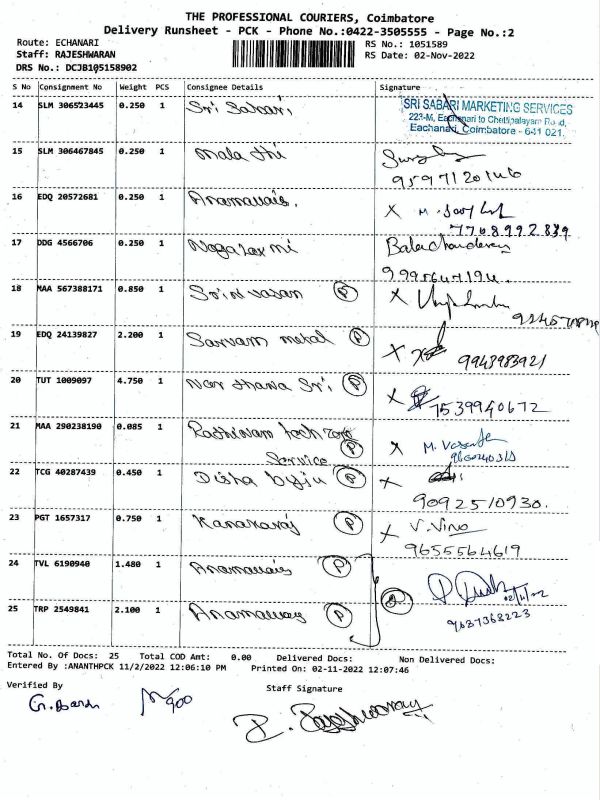 THE PROFESSIONAL COURIERS, Coimbatore
Delivery Runsheet - PCK - Phone No.:0422-3505555 - Page No.:2
Route: ECHANARI RS No.: 1051589
Staff: RAJESHWARAN RS Date: 02-Nov-2022
DRS No.: DCJB105158902
S No Consignment No Weight PCS Consignee Details Signature
14 SLM 306523445 0.250 1 Sri Sabari, SRI SABARI MARKETING SERVICES
223-M, Eachanari to Chettipalayam Road,
Eachanari, Coimbatore - 641 021.
15 SLM 306467845 0.250 1 Mala thi
9597120146
16 EDQ 20572681 0.250 1 Anamauais. X M.
7708992839
17 DDG 4566706 0.250 1 Noga lax mi Balachanderan
9995647194.
18 MAA 567388171 0.850 1 Srini vasan P X
19 EDQ 24139827 2.200 1 Sarvam metal P X
9943983921
20 TUT 1009097 4.750 1 Nar thana Sri P X
7539940672
21 MAA 290238190 0.085 1 Rathinam tech zone X M.
Service P
22 TCG 40287439 0.450 1 Disha byju P X
9092510930.
23 PGT 1657317 0.750 1 Kanakaraj P X V. Vino
9655564619
24 TVL 6190940 1.480 1 Anamauais P
02/11/22
25 TRP 2549841 2.100 1 Anamauais P
9037368223
Total No. Of Docs: 25 Total COD Amt: 0.00 Delivered Docs: Non Delivered Docs:
Entered By :ANANTHPCK 11/2/2022 12:06:10 PM Printed On: 02-11-2022 12:07:46
Verified By Staff Signature
900